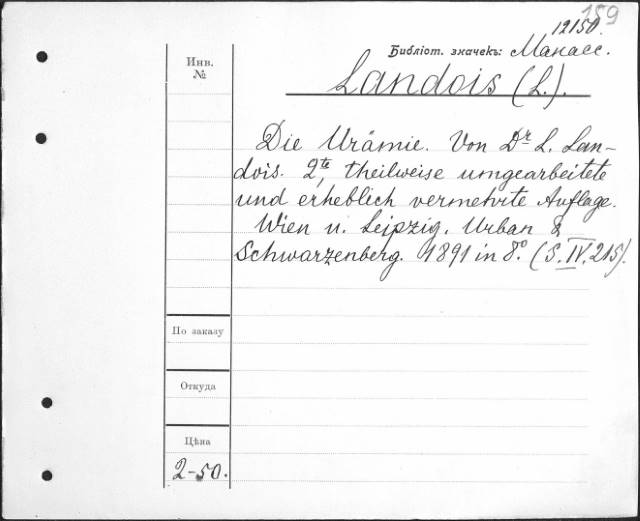 159
12150.
Библіот. значекъ: Манасс.
Инв.
№
Landois (L.).
Die Urämie. Von Dr L. Lan-
dois. 2te, theilweise umgearbeitete
und erheblich vermehrte Auflage.
Wien u. Leipzig. Urban &
Schwarzenberg. 1891 in 8º. (S. IV. 215).
По заказу
Откуда
Цѣна
2-50.